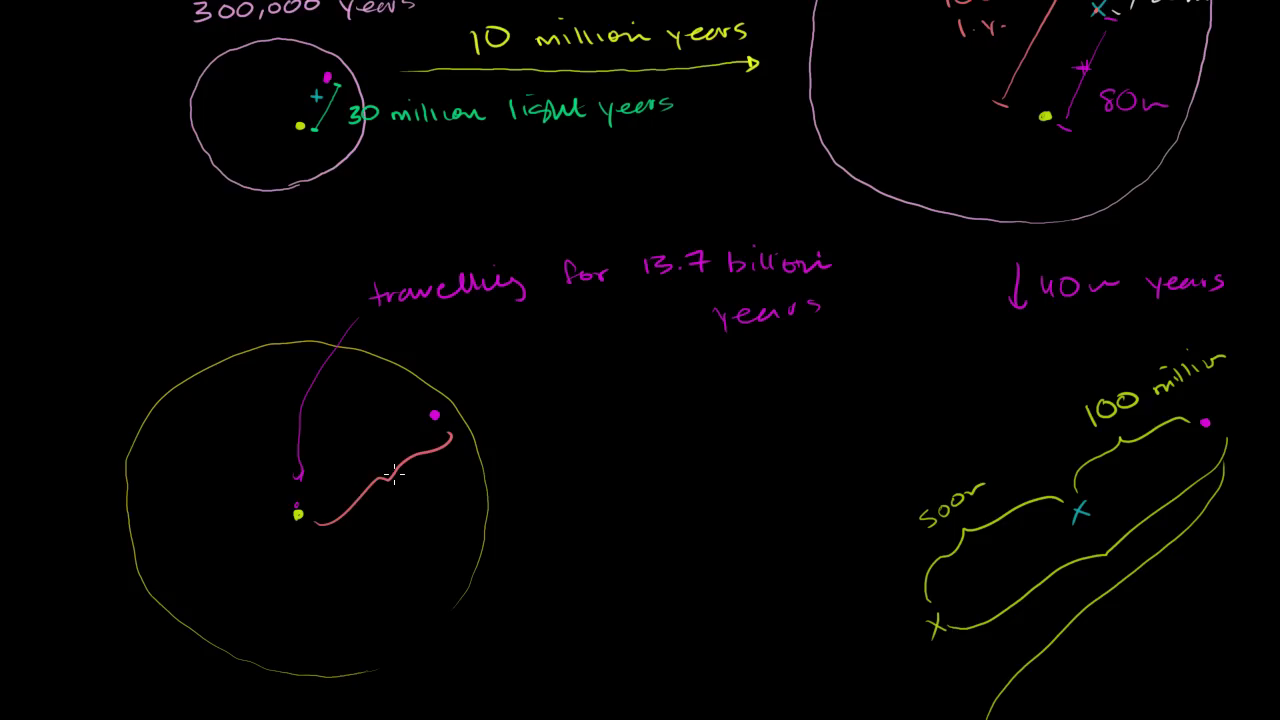 300,000 years
10 million years
30 million light years
l.y.
80m
travelling for 13.7 billion
years
↓ 40m years
100 million
500m